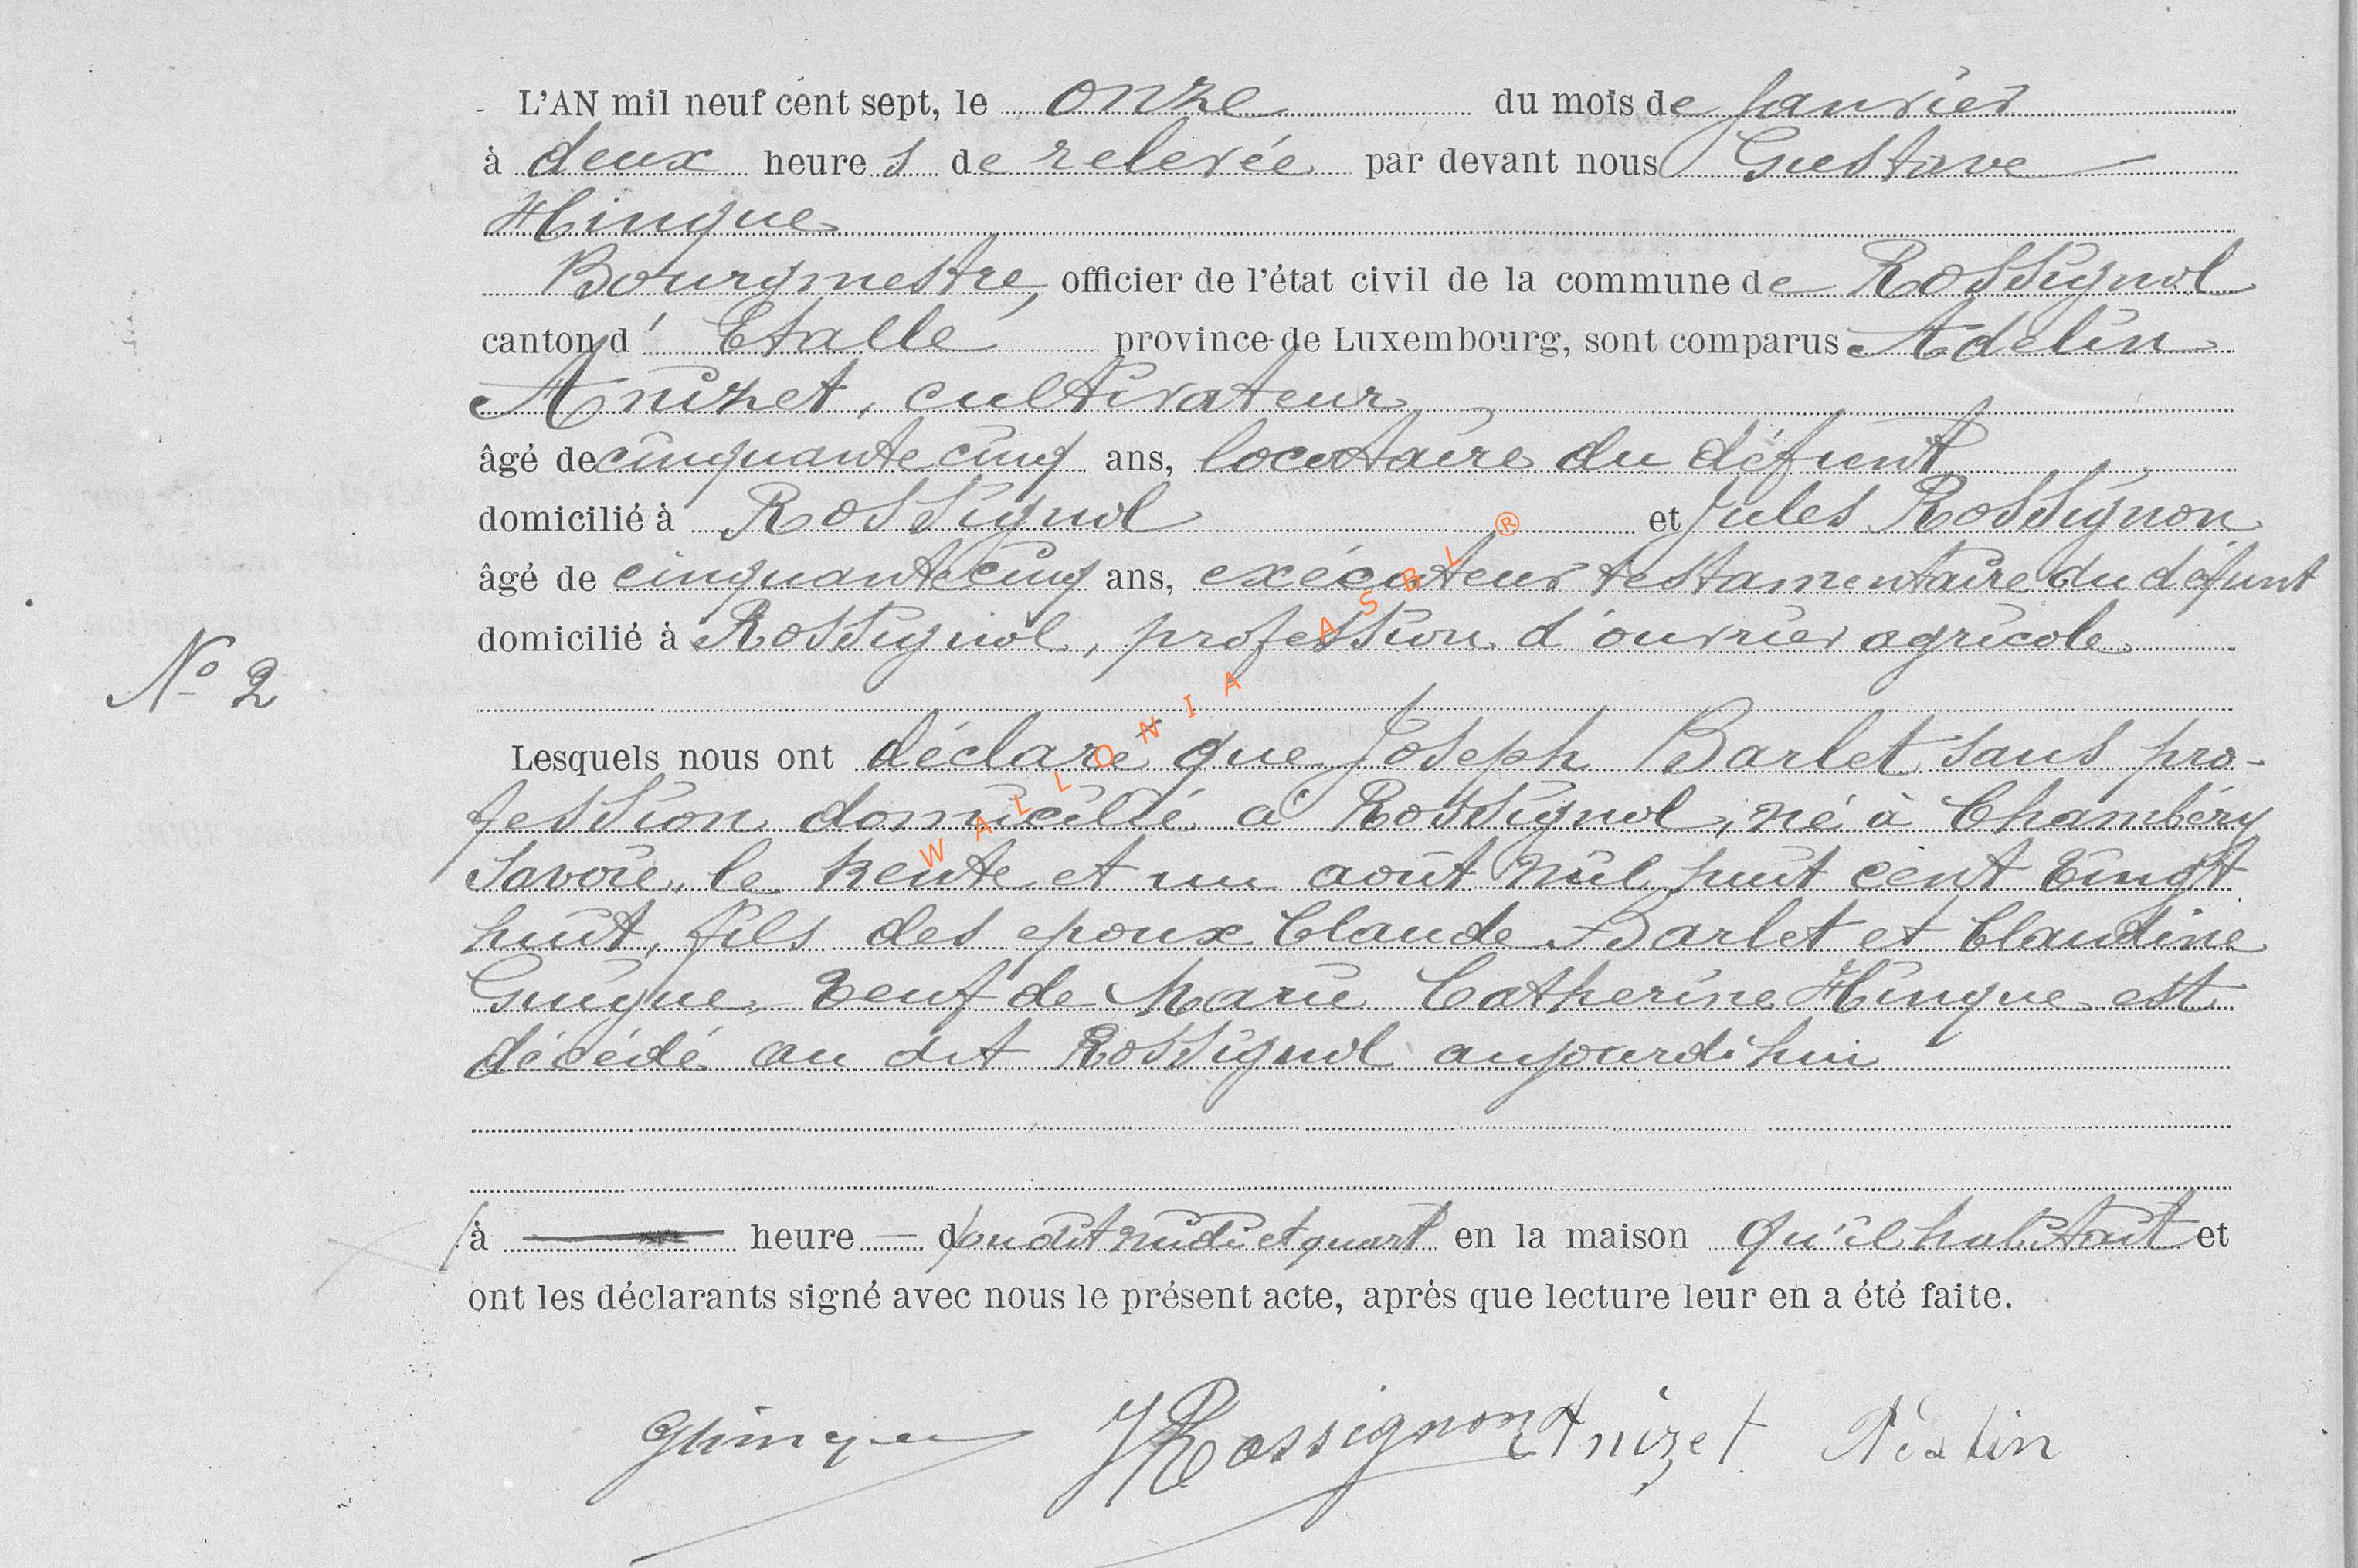 L'AN mil neuf cent sept, le onze du mois de Janvier
à deux heures de relevée par devant nous Gustave
Hinque
Bourgmestre, officier de l'état civil de la commune de Rossignol
canton d' Etalle province de Luxembourg, sont comparus Adelin
Anizet, cultivateur
âgé de cinquante cinq ans, locataire du défunt
domicilié à Rossignol et Jules Rossignon
âgé de cinquante cinq ans, exécuteur testamentaire du défunt
domicilié à Rossignol, profession d'ouvrier agricole
No 2
Lesquels nous ont déclaré que Joseph Barlet sans pro-
fession domicilié à Rossignol, né à Chambéry
Savoie, le trente et un août mil huit cent vingt
huit, fils des epoux Claude Barlet et Claudine
Guigue, veuf de Marie Catherine Hinque est
décédé au dit Rossignol aujourd'hui
à heure d au dit midi et quart en la maison qu'il habitait et
ont les déclarants signé avec nous le présent acte, après que lecture leur en a été faite.
GHinque JRossignon Anizet
WALLONIA ASBL ®